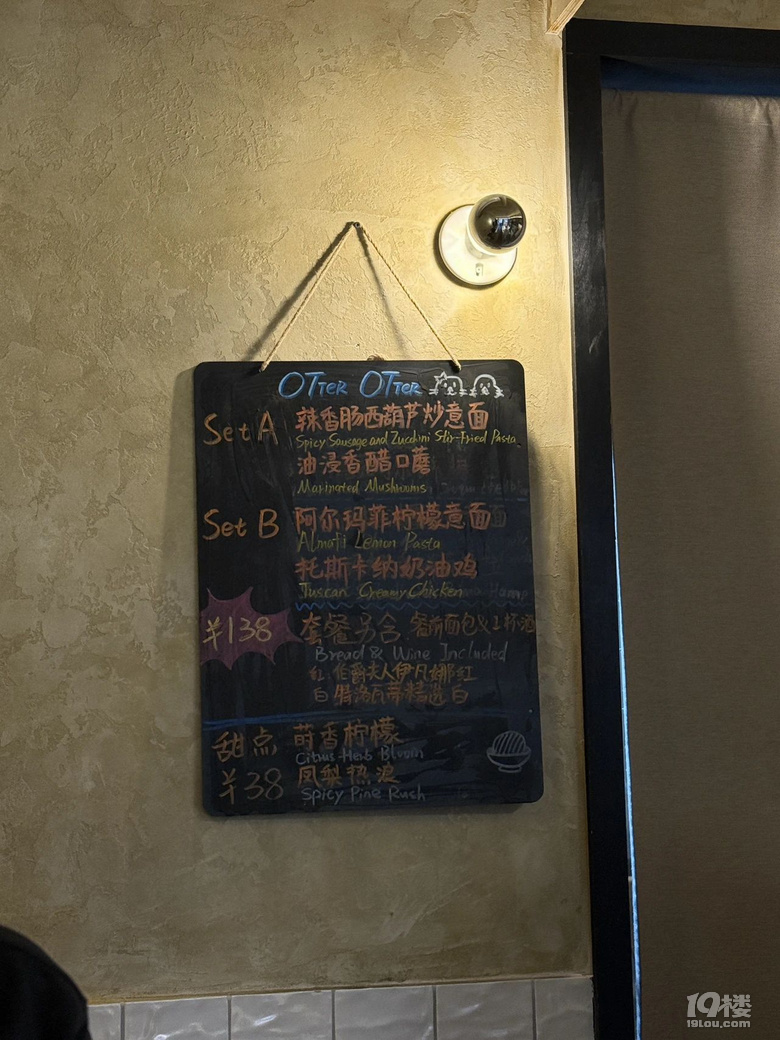 OTTER OTTER
Set A 辣香肠西葫芦炒意面
Spicy Sausage and Zucchini Stir-Fried Pasta
油浸香醋口蘑
Marinated Mushrooms
Set B 阿尔玛菲柠檬意面
Almafi Lemon Pasta
托斯卡纳奶油鸡
Tuscan Creamy Chicken
¥138 套餐另含:餐前面包×1杯酒
Bread & Wine Included
红 伯爵夫人伊凡娜红
白 特洛瓦蒂精选白
甜点 莳香柠檬
Citrus Herb Bloom
¥38 凤梨热浪
Spicy Pine Rush
19楼
19lou.com